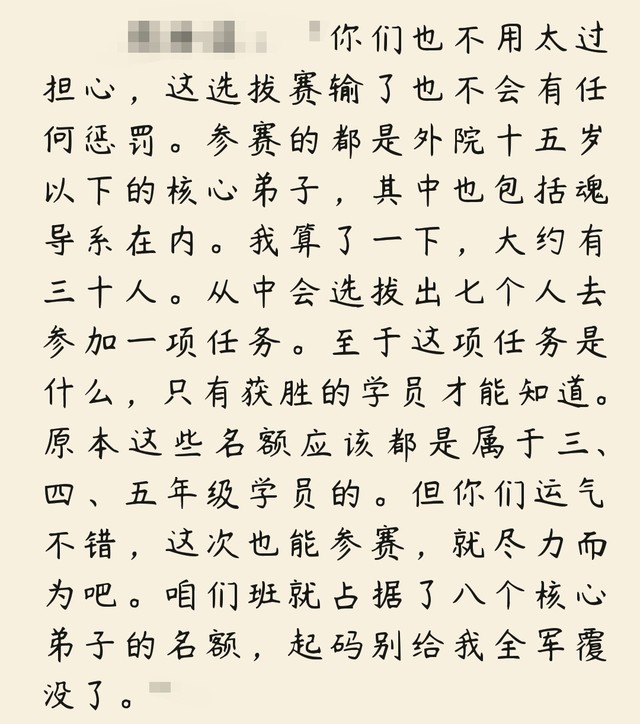 你们也不用太过
担心，这选拔赛输了也不会有任
何惩罚。参赛的都是外院十五岁
以下的核心弟子，其中也包括魂
导系在内。我算了一下，大约有
三十人。从中会选拔出七个人去
参加一项任务。至于这项任务是
什么，只有获胜的学员才能知道。
原本这些名额应该都是属于三、
四、五年级学员的。但你们运气
不错，这次也能参赛，就尽力而
为吧。咱们班就占据了八个核心
弟子的名额，起码别给我全军覆
没了。